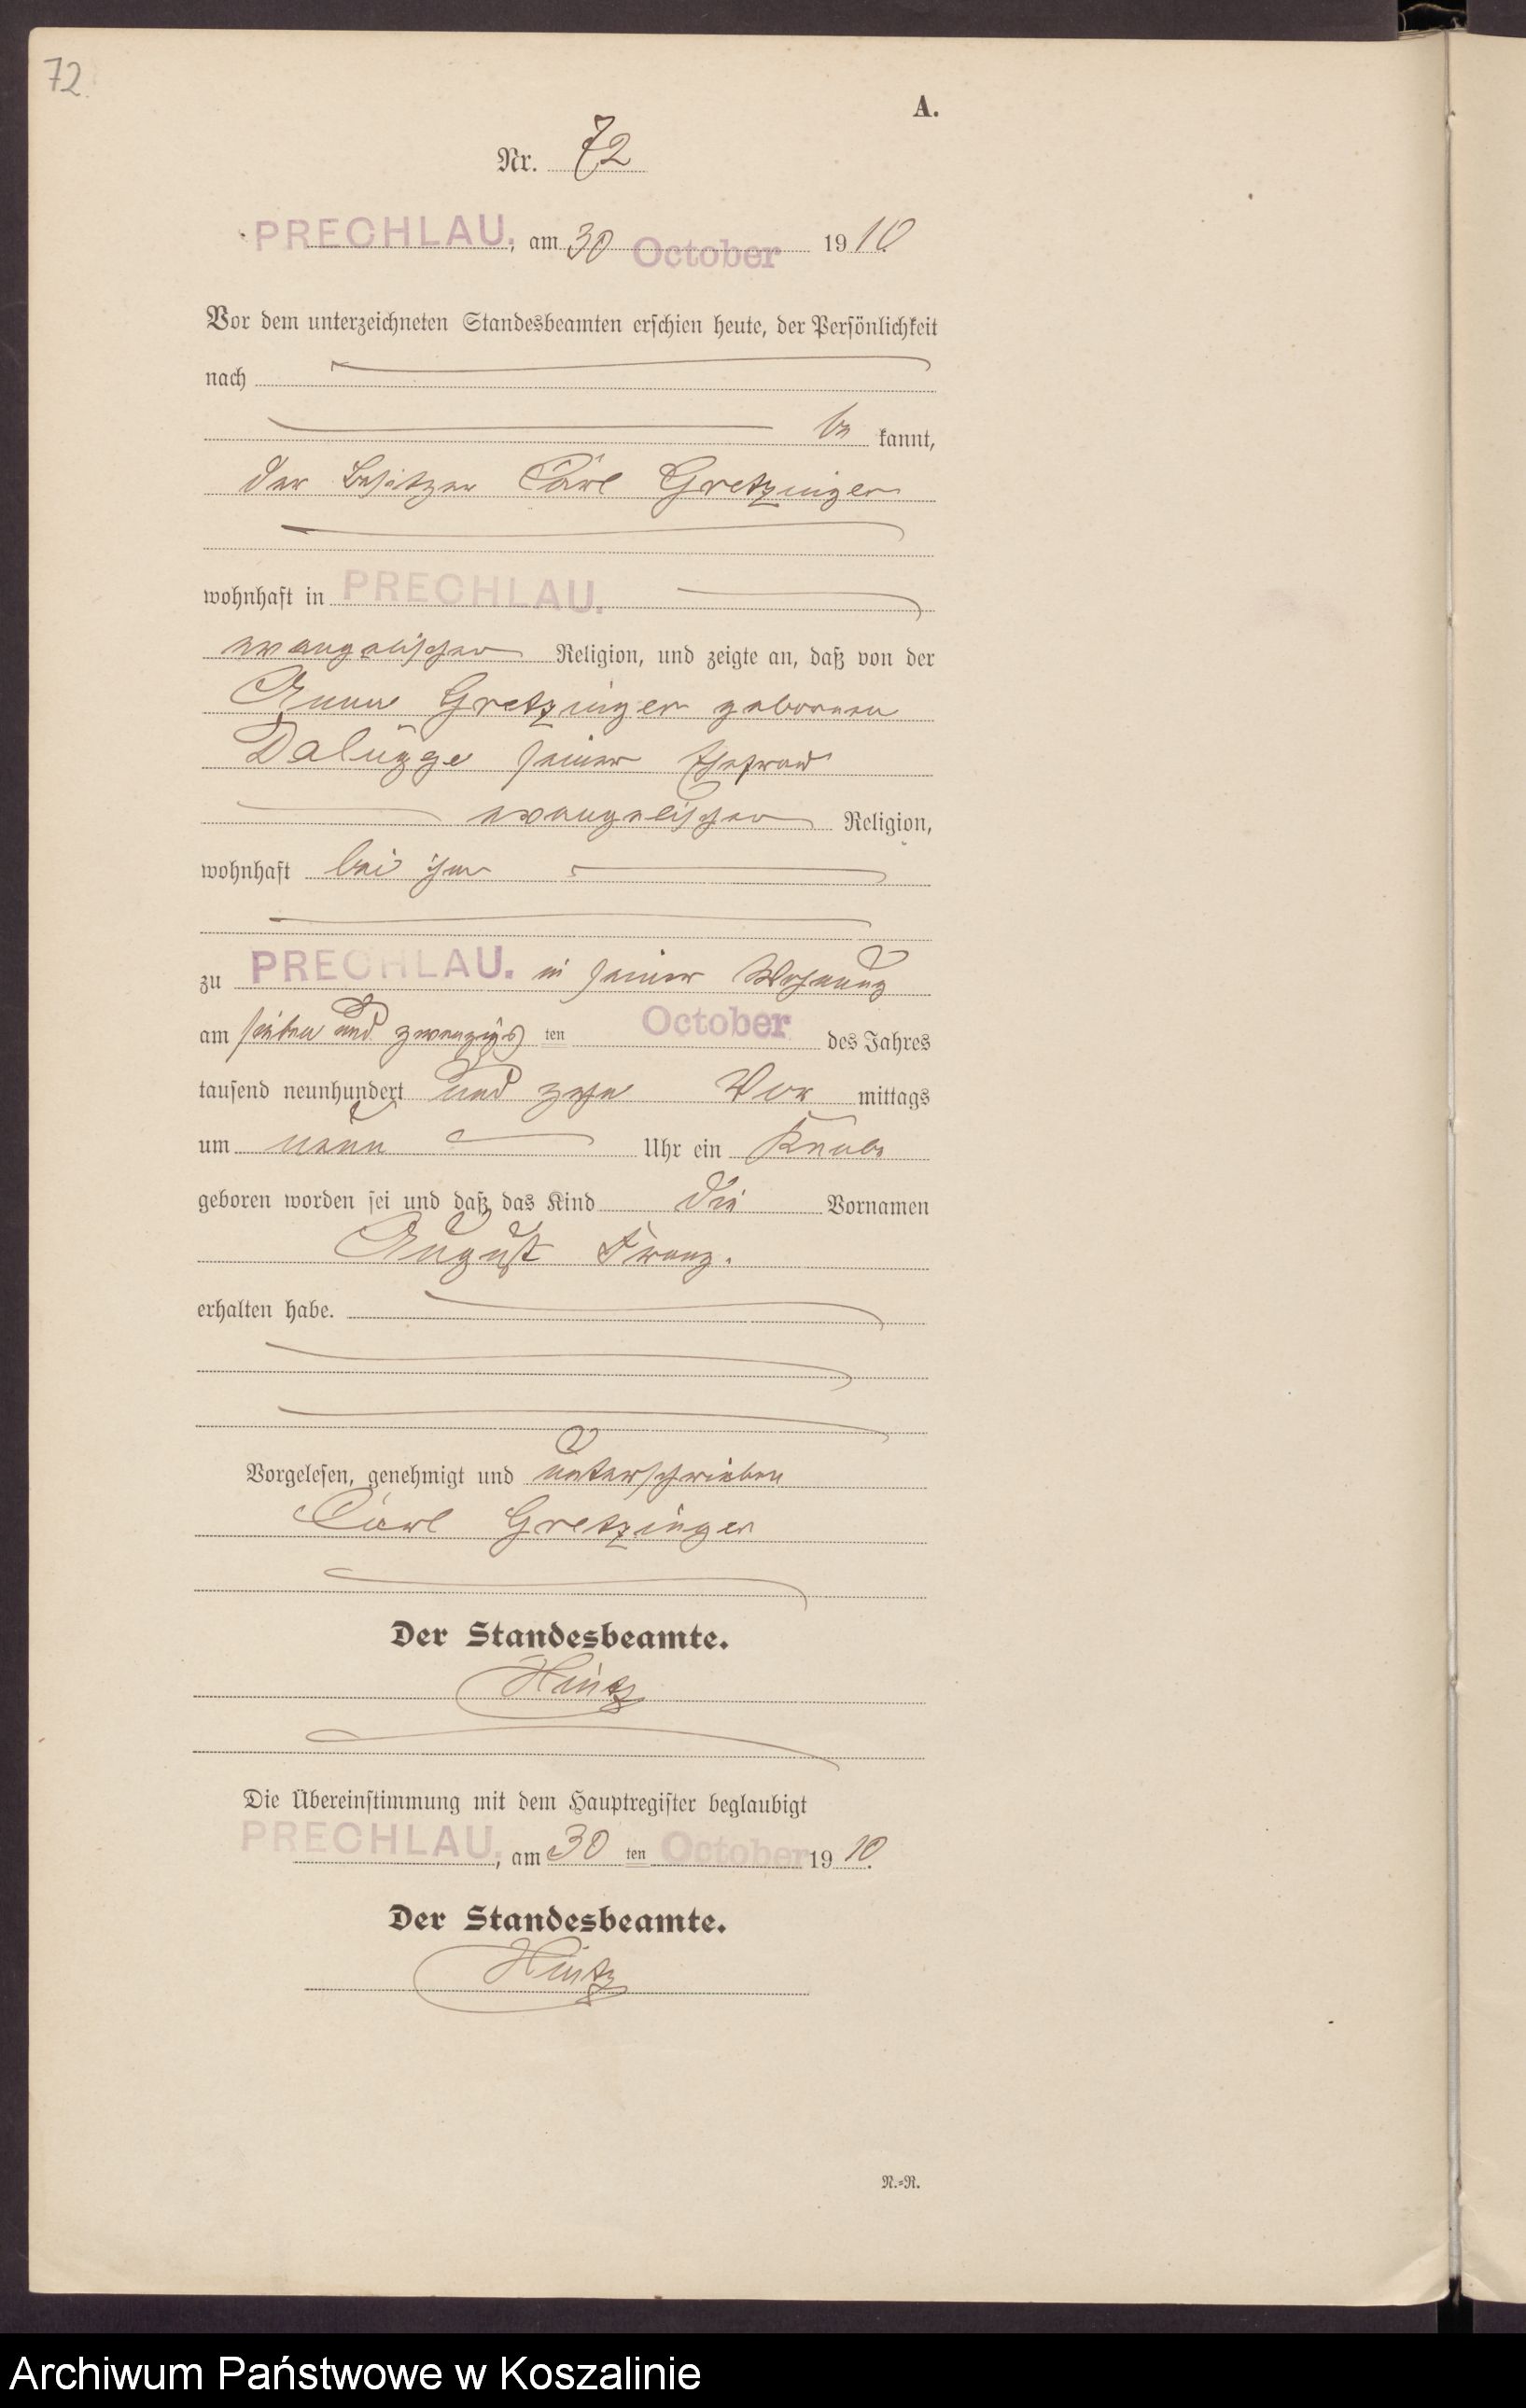 72.
A.
Nr. 72
PRECHLAU., am 30 October 1910.
Vor dem unterzeichneten Standesbeamten erschien heute, der Persönlichkeit
nach
be kannt,
der Besitzer Carl Gretzinger
wohnhaft in PRECHLAU.
evangelischer Religion, und zeigte an, daß von der
Anna Gretzinger geborenen
Dalügge seiner Ehefrau
evangelischer Religion,
wohnhaft bei ihm
zu PRECHLAU. in seiner Wohnung
am sieben und zwanzigs ten October des Jahres
tausend neunhundert und zehn Vor mittags
um neun Uhr ein Knabe
geboren worden sei und daß das Kind die Vornamen
August Franz.
erhalten habe.
Vorgelesen, genehmigt und unterschrieben
Carl Gretzinger
Der Standesbeamte.
Hintz
Die Übereinstimmung mit dem Hauptregister beglaubigt
PRECHLAU., am 30 ten October 1910.
Der Standesbeamte.
Hintz
R.=R.
Archiwum Państwowe w Koszalinie